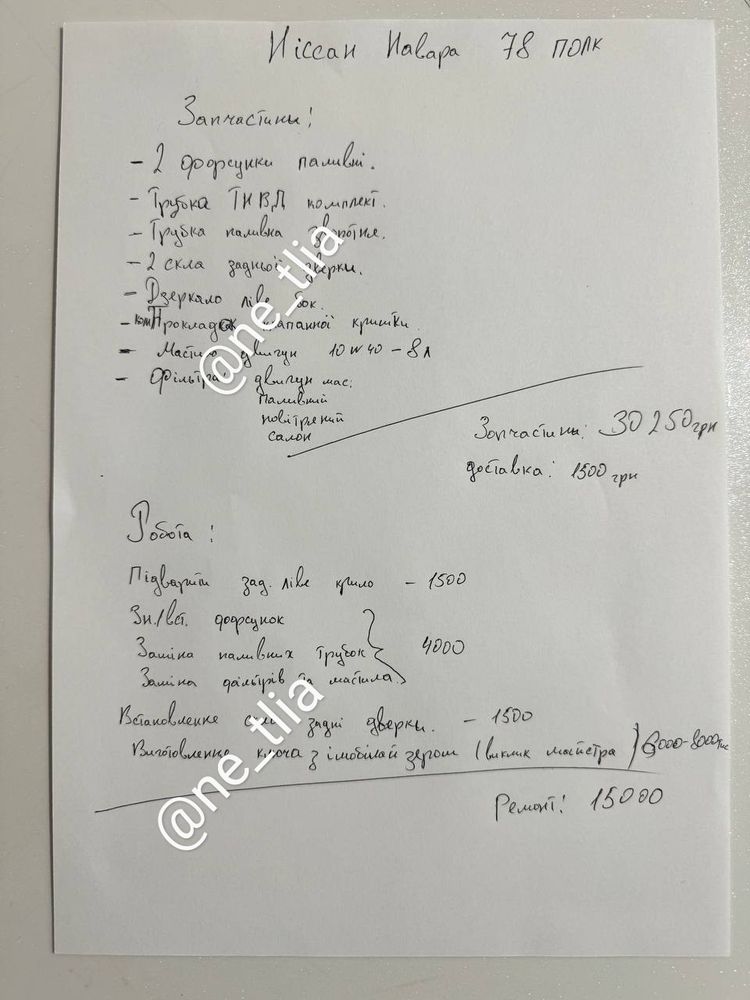 Ніссан Навара 78 полк
Запчастины!
- 2 форсунки паливні.
- Трубка ТНВД комплект.
- Трубка паливна зворотня.
- 2 скла задньої дверки.
- Дзеркало ліве бок.
- Прокладок клапанної кришки.
- Мастило двигун 10w40 - 8л
- Фільтра: двигун мас.
паливний
повітряний
салон
Запчастины: 30250 грн
доставка: 1500 грн
Робота!
Підварити зад. ліве крило - 1500
Зн./вст. форсунок
Заміна паливних трубок } 4000
Заміна фільтрів та мастила.
Встановленне скла задні дверки. - 1500
Виготовленне ключа з імобілайзером (виклик майстра) 6000-8000тис
Ремонт! 15000
@ne_tlia
@ne_tlia